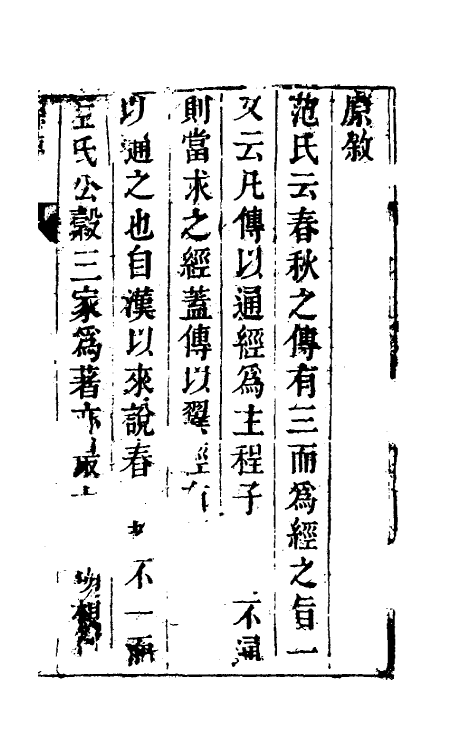 原敘
范氏云春秋之傳有三而爲經之旨一
又云凡傳以通經爲主程子不通
則當求之經蓋傳以翼經
以通之也自漢以來說春不一而
左氏公穀三家爲著亦